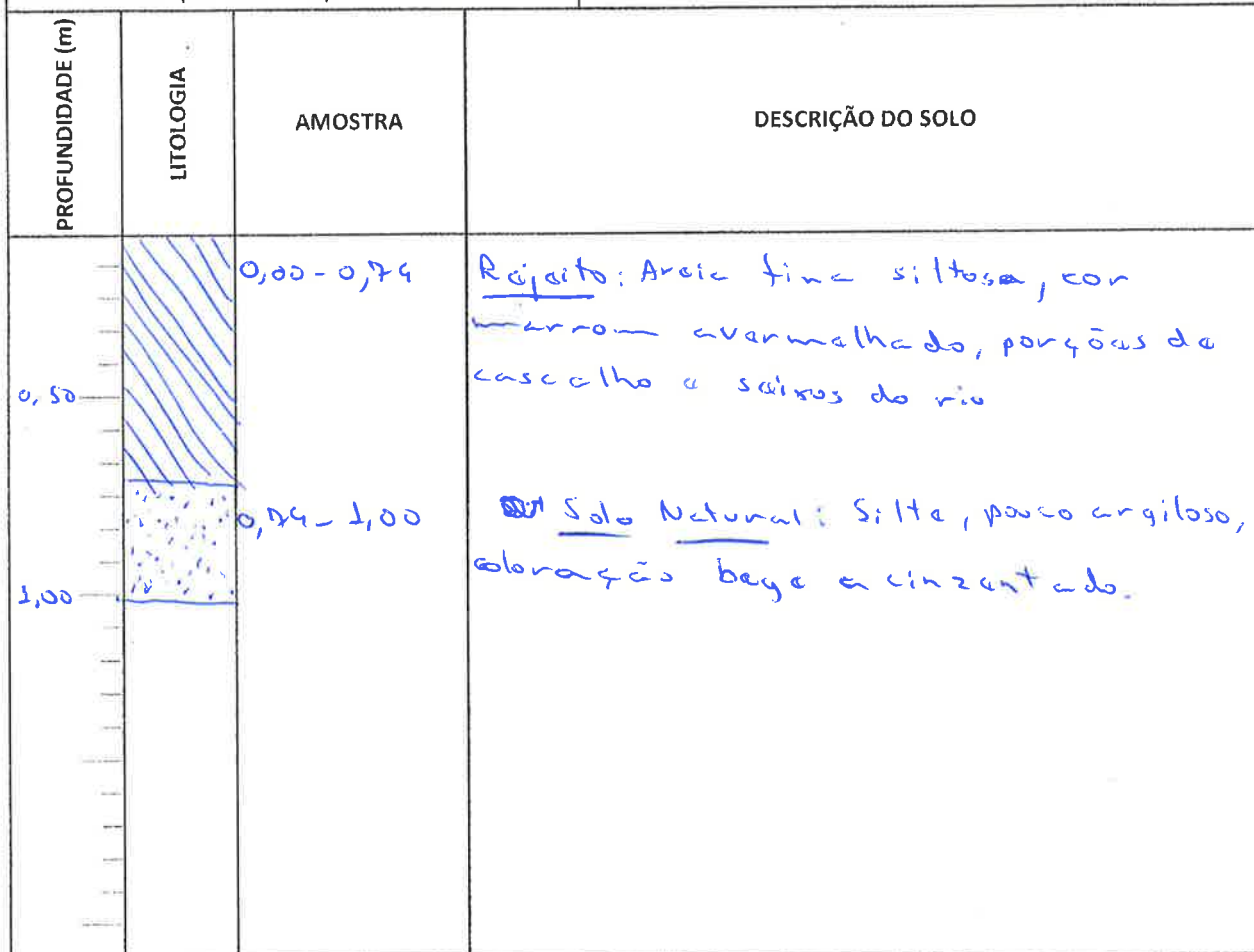 PROFUNDIDADE (m)
LITOLOGIA
AMOSTRA
DESCRIÇÃO DO SOLO
0,00 - 0,74
Rejeito: Areia fina siltosa, cor
marrom avermelhado, porções de
cascalho e seixos do rio
0,50
0,74 - 1,00
Solo Natural: Silte, pouco argiloso,
coloração bege acinzantado.
1,00